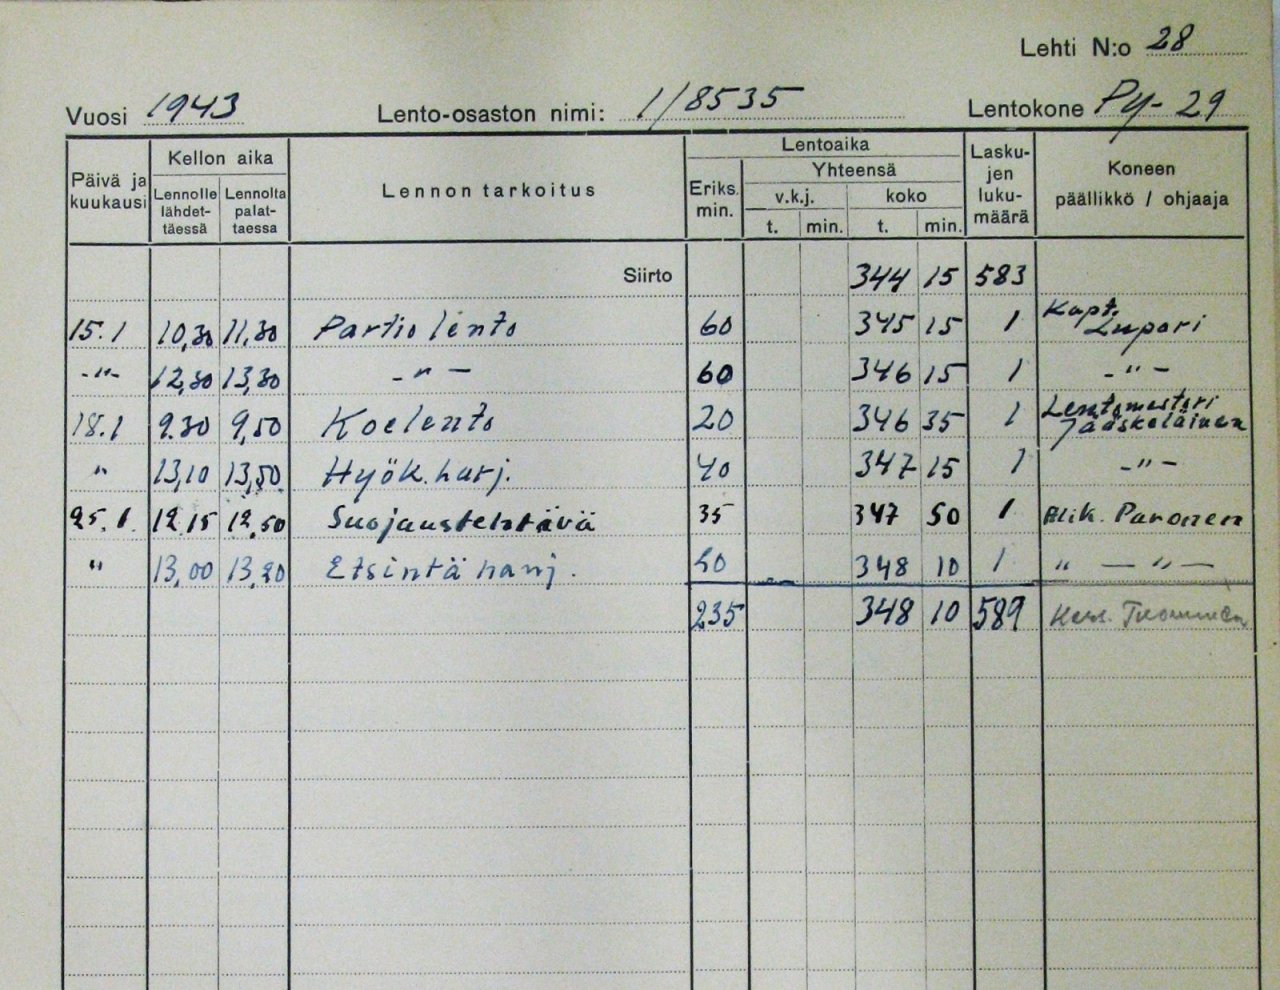 Lehti N:o 28
Vuosi 1943 Lento-osaston nimi: 1/8535 Lentokone Py-29
Päivä ja kuukausi Kellon aika Lennolle lähdet- täessä Lennolta palat- taessa Lennon tarkoitus Lentoaika Eriks. min. Yhteensä v.k.j. t. min. koko t. min. Lasku- jen luku- määrä Koneen päällikkö / ohjaaja
Siirto 344 15 583
15.1 10,30 11,30 Partiolento 60 345 15 1 Kapt. Lupari
-"- 12,30 13,30 -"- 60 346 15 1 -"-
18.1 9.30 9,50 Koelento 20 346 35 1 Lentomestari Jääskeläinen
" 13,10 13,50 Hyök.harj. 40 347 15 1 -"-
25.1. 12.15 12.50 Suojaustehtävä 35 347 50 1 Alik. Paronen
" 13,00 13,20 Etsintä harj. 20 348 10 1 " — " —
235 348 10 589 Kers. Tuominen